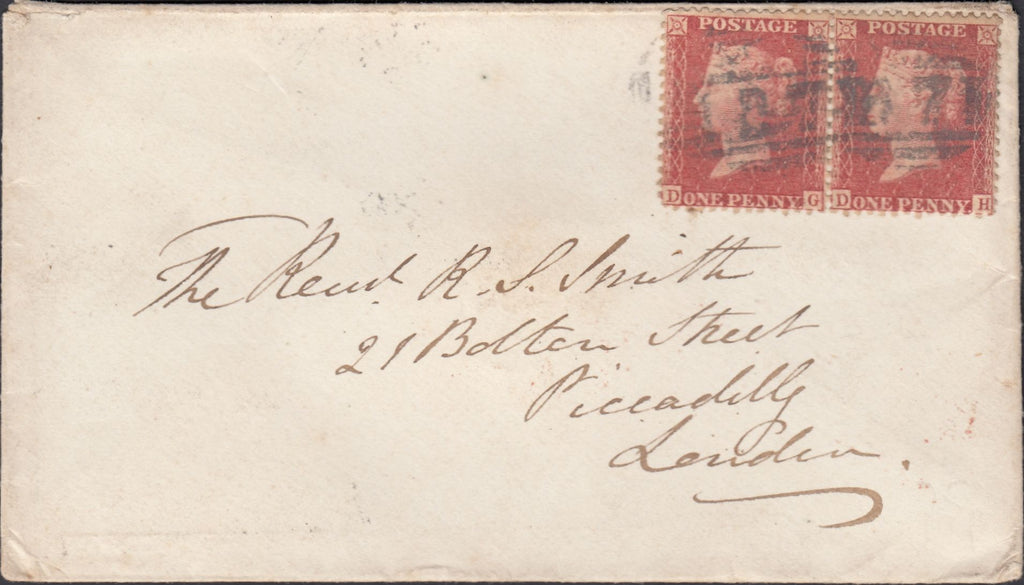 POSTAGE POSTAGE
D ONE PENNY G D ONE PENNY H
The Revd. R. S. Smith
21 Bolton Street
Piccadilly
London.